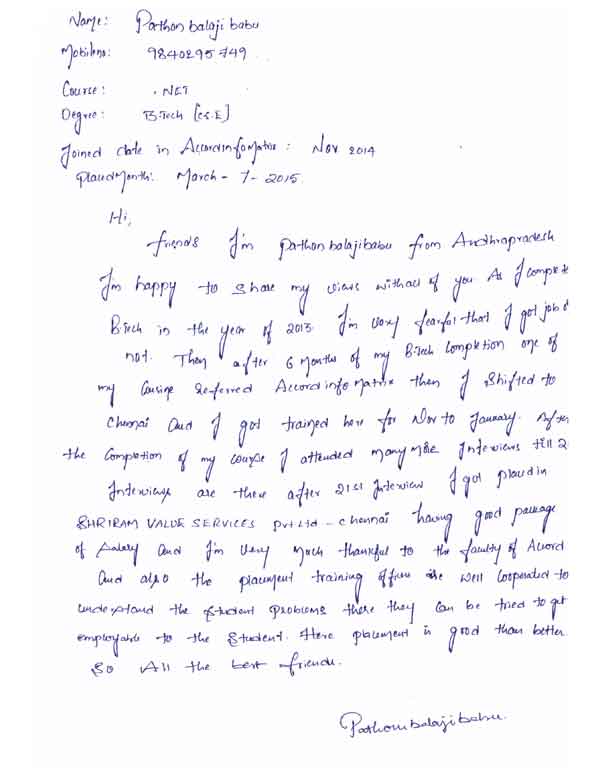 Name: Pathan balaji babu
Mobileno: 9840295749
Course: .NET
Degree: B.Tech [cs.E]
Joined date in Accordinfomatrix: Nov 2014
Placed Month: March - 7 - 2015.
Hi,
friends I'm pathan balajibabu from Andhrapradesh
I'm happy to share my views withall of you As I complete
B.Tech in the year of 2013. I'm very fearful that I got job o
not. Then after 6 months of my B.Tech Completion one of
my Cousine Referred Accordinfo Matrix then I Shifted to
Chennai and I got trained here for Nov to January. After
the Completion of my course I attended many more Interviews till 2
Interviews are there after 21st Interview I got placed in
SHRIRAM VALUE SERVICES pvt Ltd - chennai having good package
of salary and I'm very much thankful to the faculty of Accord
and also the placement training officer are well Cooperated to
understand the student problems there they can be tried to get
employable to the student. Here placement is good than better.
so All the best friends.
Pathan balaji babu.